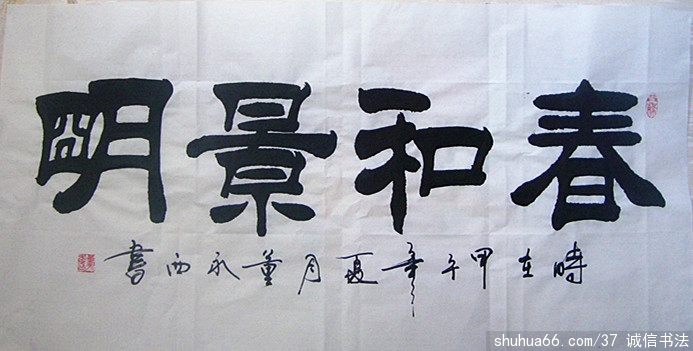 春和景明
時在甲午年夏月董永西書
shuhua66.com/37 诚信书法